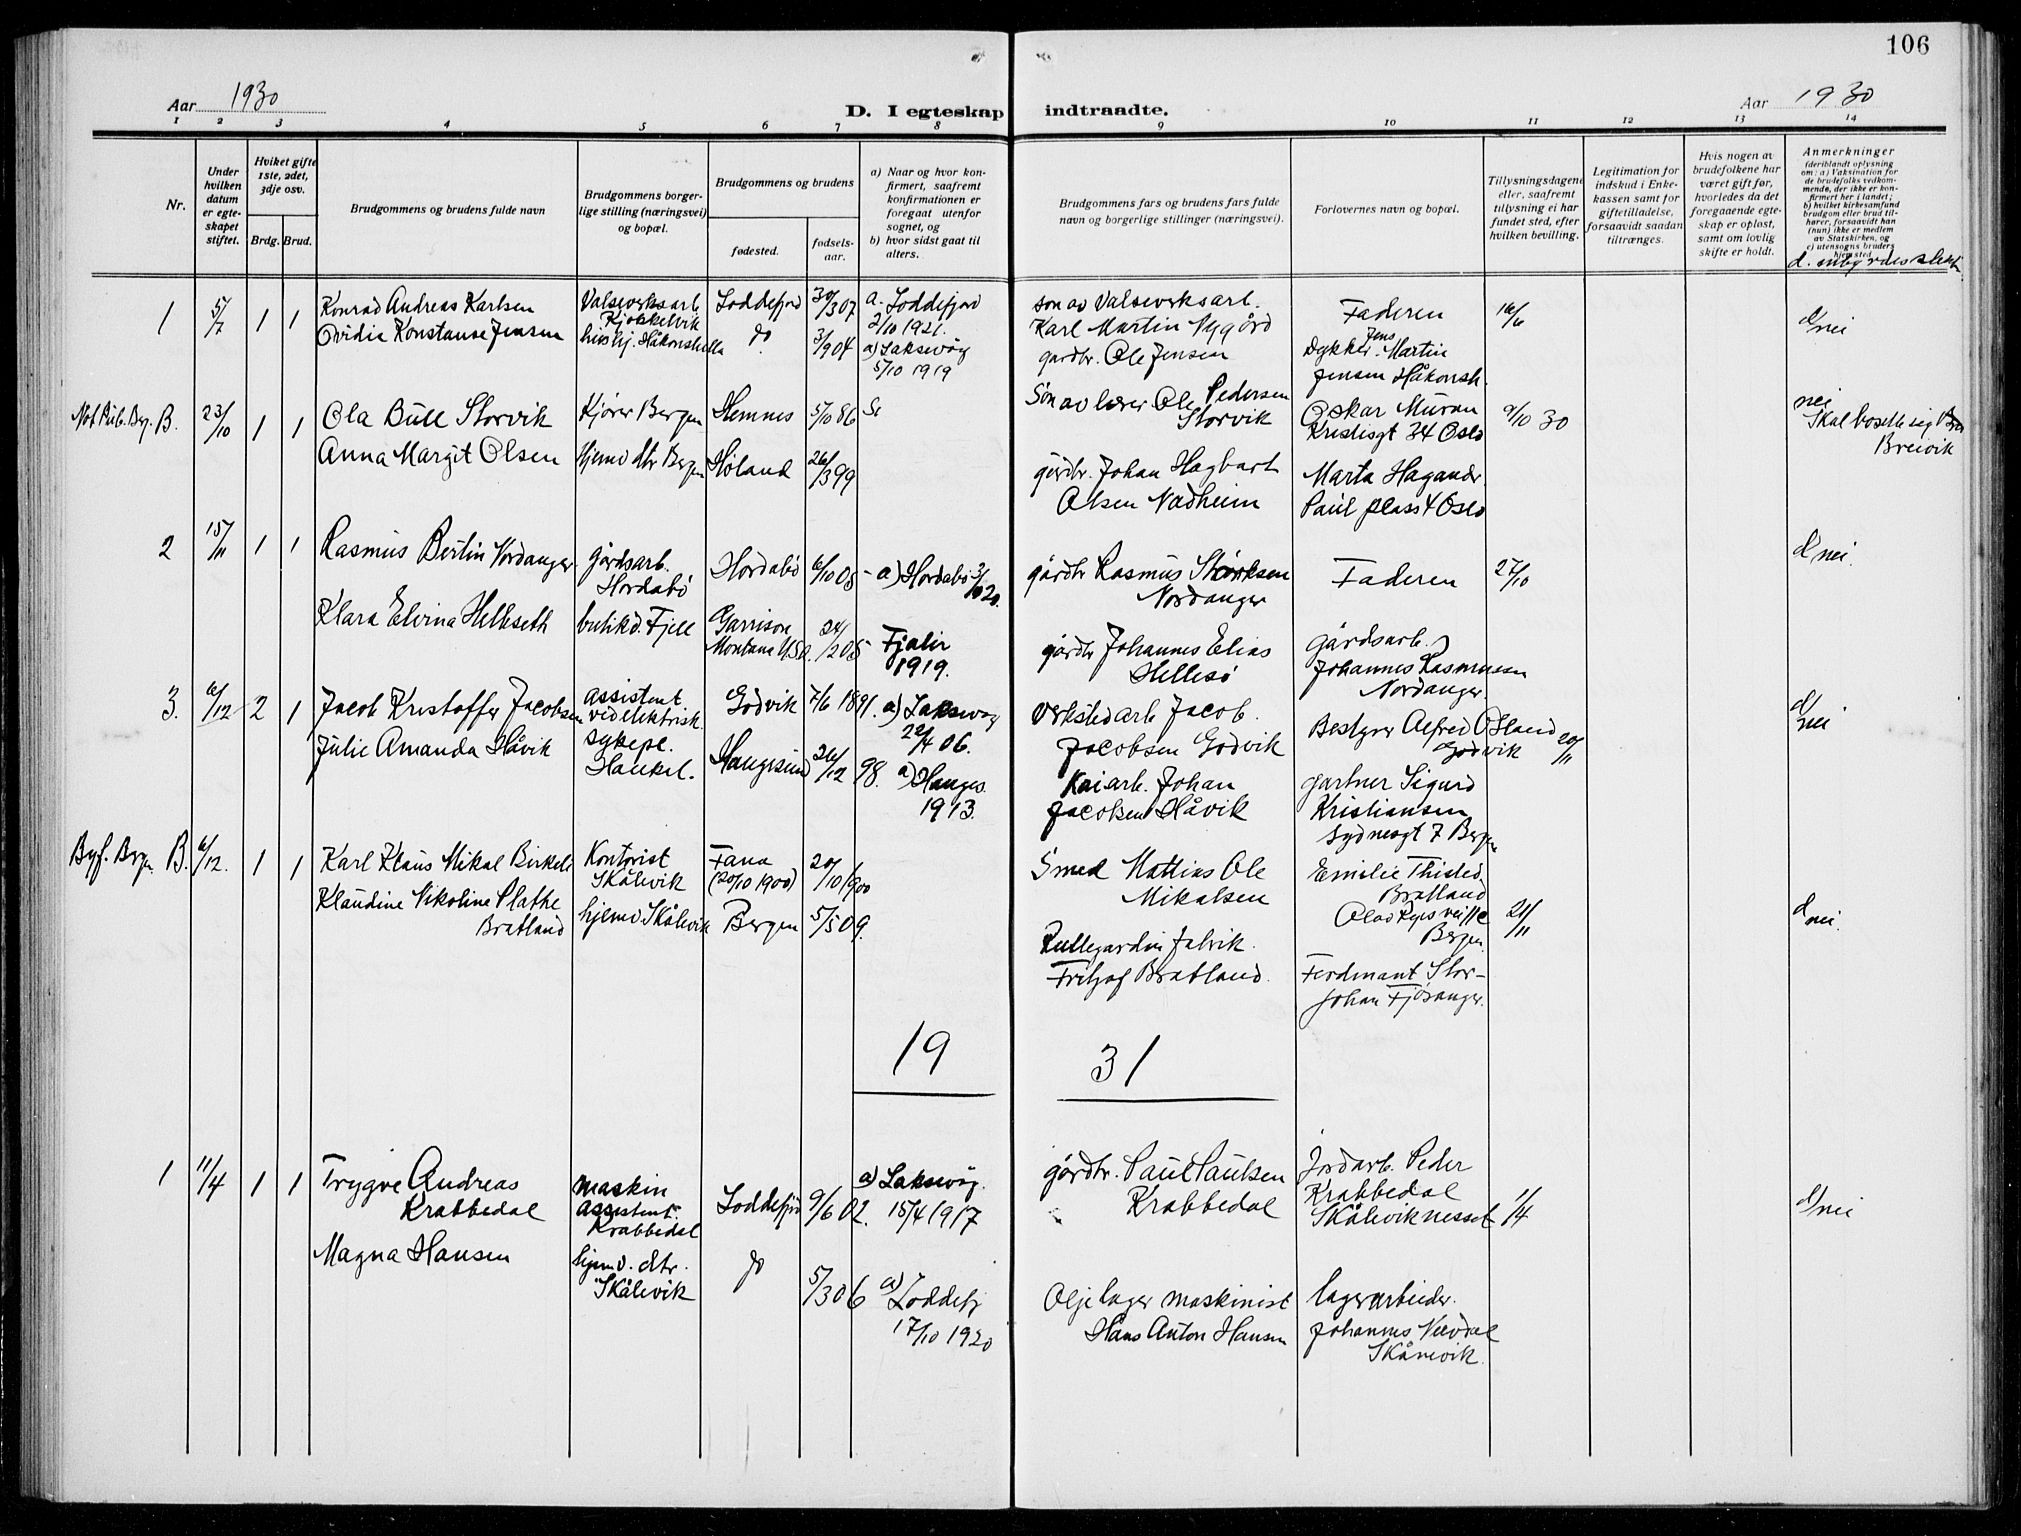 106
Aar 1930
D. I egteskap indtraadte.
Aar 1930
1 2 3 4 5 6 7 8 9 10 11 12 13 14
Nr.
Under hvilken datum er egteskapet stiftet.
Hviket gifte 1ste, 2det, 3dje osv.
Brdg. Brud.
Brudgommens og brudens fulde navn
Brudgommens borgerlige stilling (næringsvei) og bopæl.
Brudgommens og brudens
fødested.
fødselsaar.
a) Naar og hvor konfirmert, saafremt konfirmationen er foregaat utenfor sognet, og
b) hvor sidst gaat til alters.
Brudgommens fars og brudens fars fulde navn og borgerlige stillinger (næringsvei).
Forlovernes navn og bopæl.
Tillysningsdagene eller, saafremt tillysning ei har fundet sted, efter hvilken bevilling.
Legitimation for indskud i Enkekassen samt for giftetilladelse, forsaavidt saadan tiltrænges.
Hvis nogen av brudefolkene har været gift før, hvorledes da det foregaaende egteskap er opløst, samt om lovlig skifte er holdt.
Anmerkninger
(deriblandt oplysning om: a) Vaksination for de brudefolks vedkommende, der ikke er konfirmert her i landet; b) hvilket kirkesamfund brudgom eller brud tilhører, forsaavidt han (nun) ikke er medlem av Statskirken, og c) utensogns bruders hjemsted.
d. inbyrdes slekt
1 5/7 1 1 Konrad Andreas Karlsen
Valseverksarb. Kjøkkelvik
Loddefjord 30/3 07
a. Loddefjord 2/10 1921.
søn av Valseverksarb. Karl Martin Nygård
Faderen
16/6
d/ nei
Ovidia Konstanse Jensen
Håkonshella
do 3/9 04
a) Laksevåg 5/10 1919
gardbr. Ole Jensen
Dykker Jens Martin Jensen Håkonsh.
Not Pub. Berg. B. 23/10 1 1 Ola Bull Storvik
Kjører Bergen
Hemnes 5/10 86
Søn av lærer Ole Pedersen Storvik
Oskar Muran Kristisgt 34 Oslo
9/10 30
nei
Skal bosette sig
Breivik
Anna Margit Olsen
hjemv dtr Bergen
Høland 26/3 99
gårdbr. Johan Hagbart Olsen Nadheim
Marta Hagander. Paul plass 4 Oslo
2 15/11 1 1 Rasmus Bertin Nordanger
gårdsarb. Hordabø
Hordabø 6/10 05
a) Hordabø 3/10 20.
gårdbr Rasmus Størksen Nordanger
Faderen
27/10
d/ nei.
Klara Elvina Helleseth
butikd. Fjell
Garrison Montana USA. 24/2 05
Fjaler 1919.
gårdbr Johannes Elias Hellesø
gårdsarb. Johannes Rasmussen Nordanger.
3. 6/12 2 1 Jacob Kristoffer Jacobsen
assistent ved elektrisk
Godvik 7/6 1891.
a) Laksevåg 22/4 06.
Verkstedarb Jacob Jacobsen Godvik
Bestyrer Alfred Østland Godvik
20/11
d/ nei
Julie Amanda Håvik
sykepl. Haukel.
Haugesund 26/12 98.
a) Hauges. 1913.
Kaiarb. Johan Jacobsen Håvik
gartner Sigurd Kristiansen
Sydnesgt 7 Bergen
Byf. Bergen B. 6/12. 1 1 Karl Klaus Mikal Birkeli
Kontorist Skålevik
Fana (20/10 1900) 20/10 1900
Smed Mattias Ole Mikalsen
Emilie Thisted Bratland
Olav Ryes vei 11c Bergen
21/11
d/ nei.
Klaudine Nikoline Plathe Bratland
hjemv Skålevik
Bergen 5/5 09.
Rullegardin fabrik. Fritjof Bratland.
Ferdinant Storjohan Fjøsanger.
19 31
1 11/4 1 1 Trygve Andreas Krabbedal
maskin assistent. Krabbedal
Loddefjord 9/6 02.
a) Laksevåg. 15/4 1917
gårdbr. Paul Paulsen Krabbedal
Jordarb. Peder Krabbedal Skåleviknesset
1/4
d/ nei
Magna Hansen
hjemv. dtr. Skålevik
do 5/3 06
a) Loddefj 17/10 1920
Oljelager maskinist Hans Anton Hansen
lagerarbeider. Johannes Veivdal Skånevik.